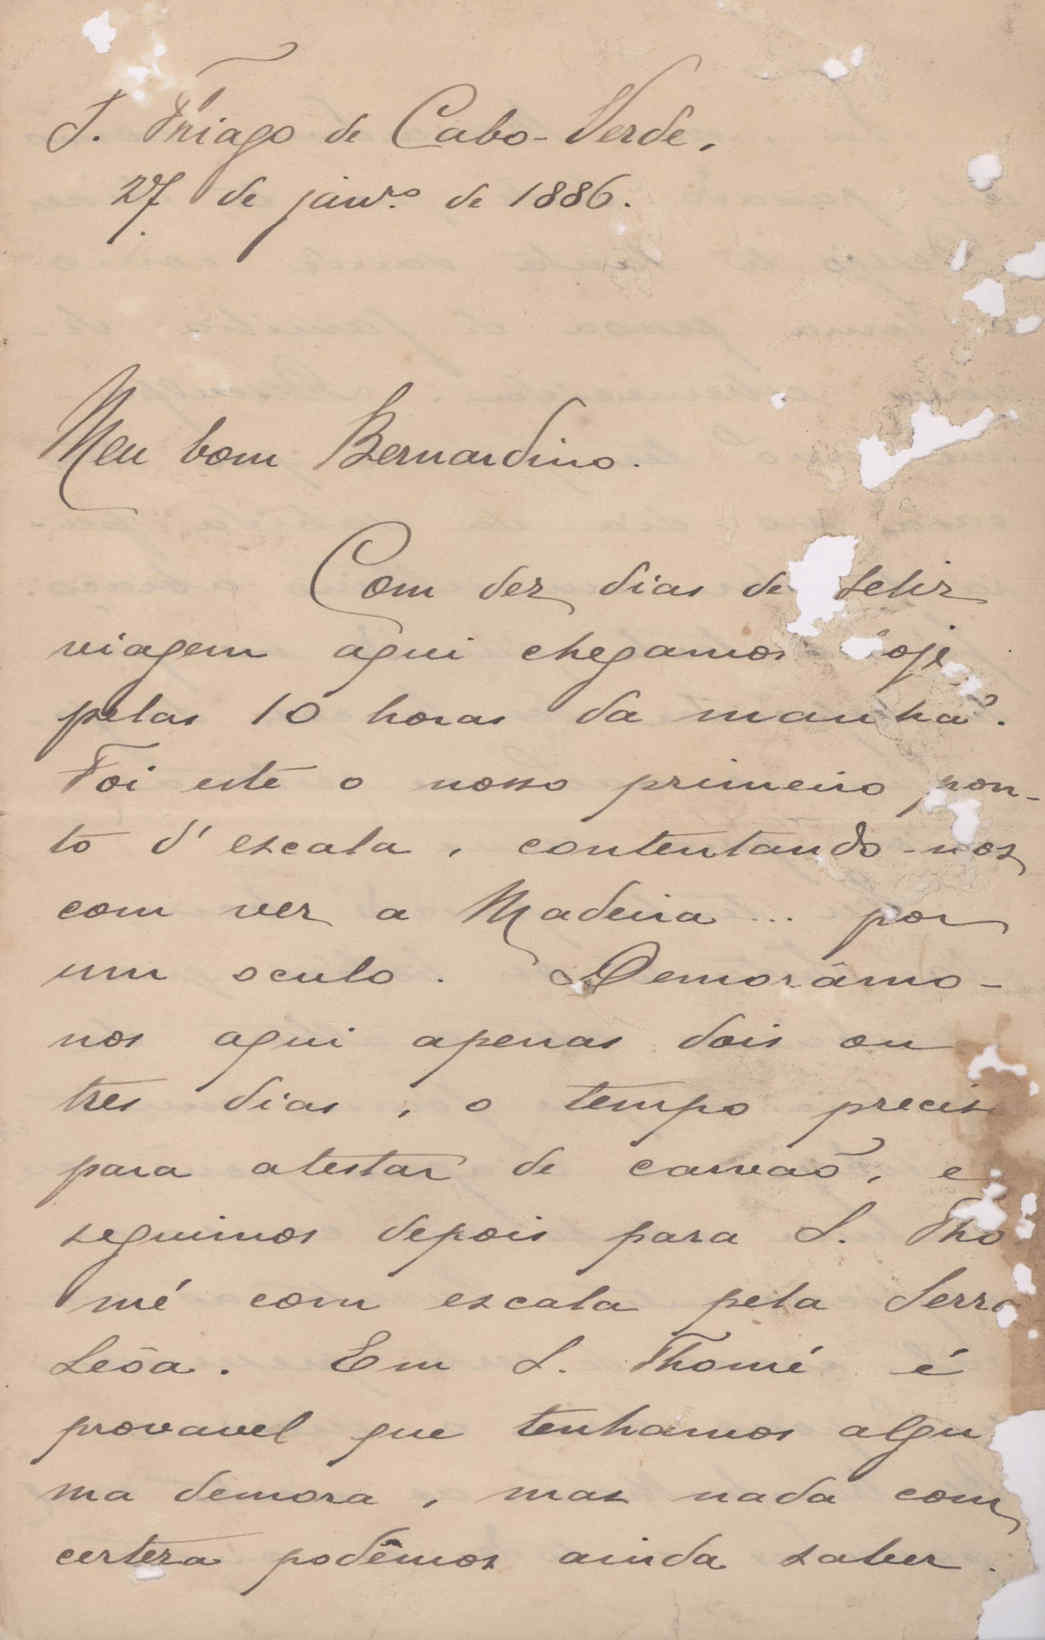 S. Thiago de Cabo-Verde,
27 de janr.º de 1886.
Meu bom Bernardino.
Com dez dias de feliz
viagem aqui chegamos hoje
pelas 10 horas da manhã.
Foi este o nosso primeiro pon-
to d'escala, contentando-nos
com ver a Madeira ... por
um oculo. Demorâmo-
nos aqui apenas dois ou
tres dias, o tempo preciso
para atestar de carvão, e
seguimos depois para S. Tho
mé com escala pela Serra
Leôa. Em S. Thomé é
provavel que tenhamos algu
ma demora, mas nada com
certeza podêmos ainda saber.